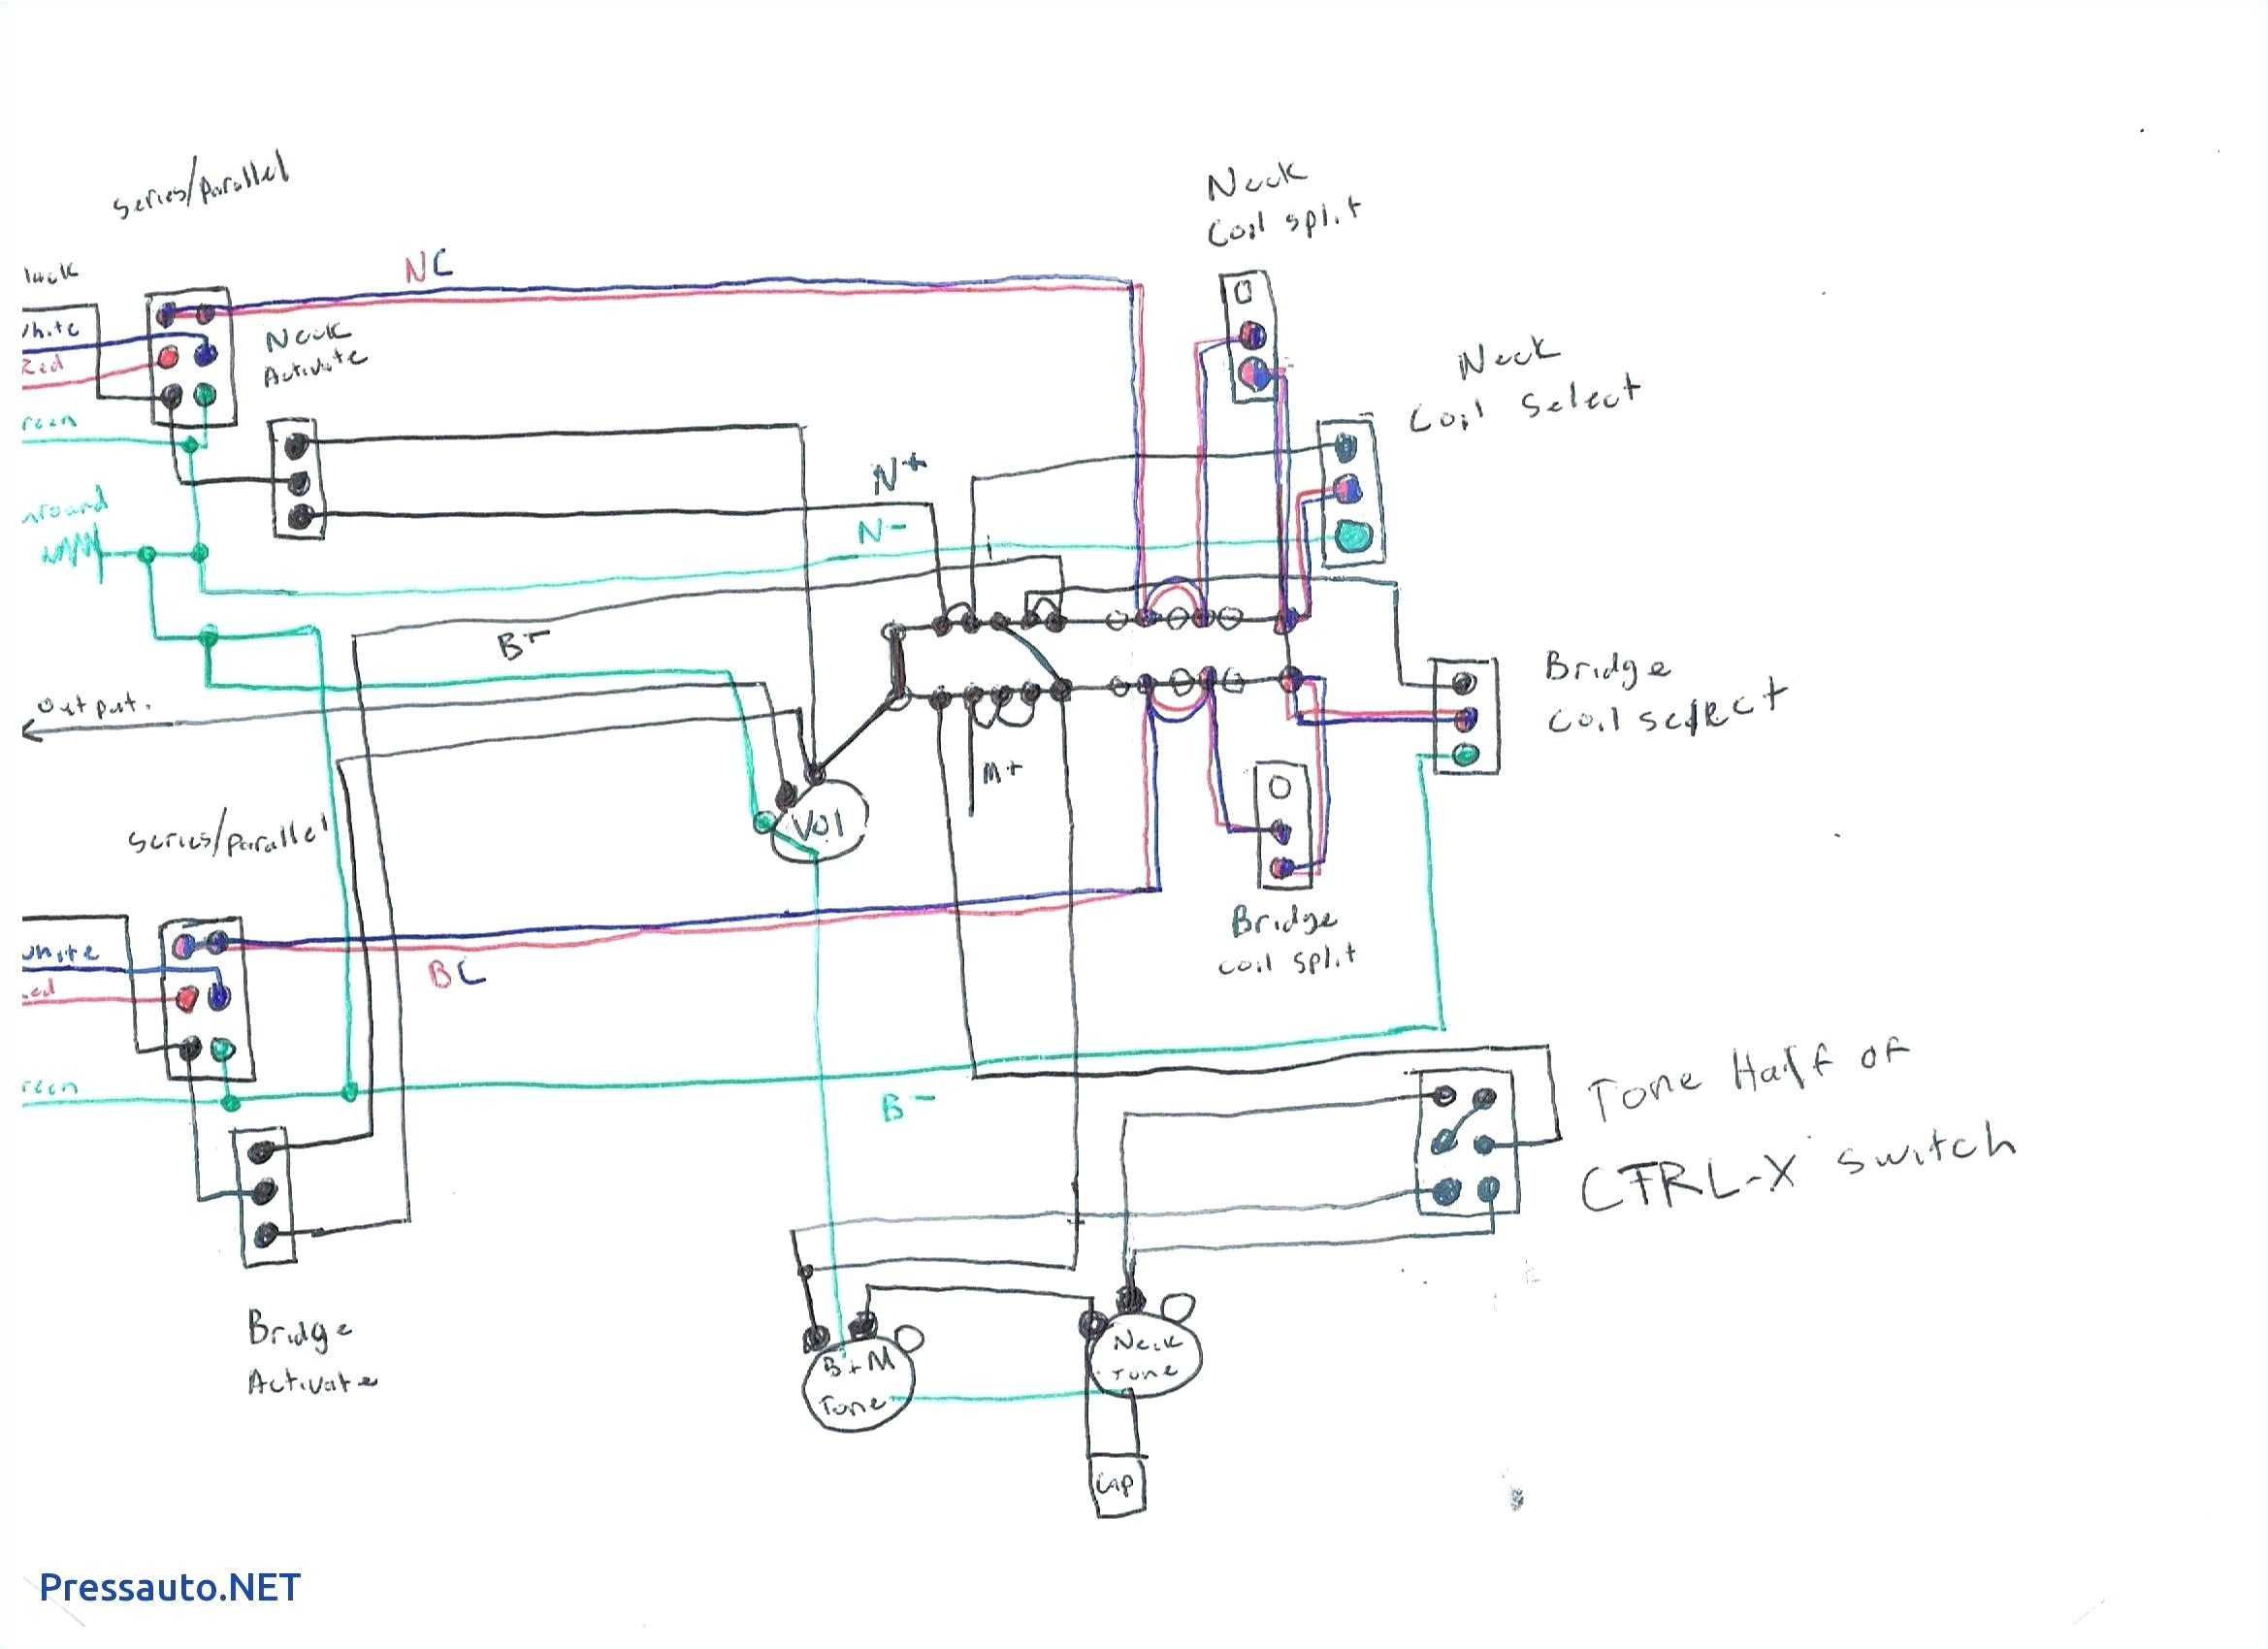 Series/parallel
Neck
Coil split
lack
NC
White
Neck
Activate
Red
Neck
Coil Select
reen
N+
round
N-
B-
Bridge
Coil select
Output.
M+
Vol
Series/parallel
Bridge
coil split
white
BC
ed
Tone Half of
CTRL-X switch
reen
B-
Bridge
Activate
Neck
Tone
B+M
Tone
CAP
Pressauto.NET